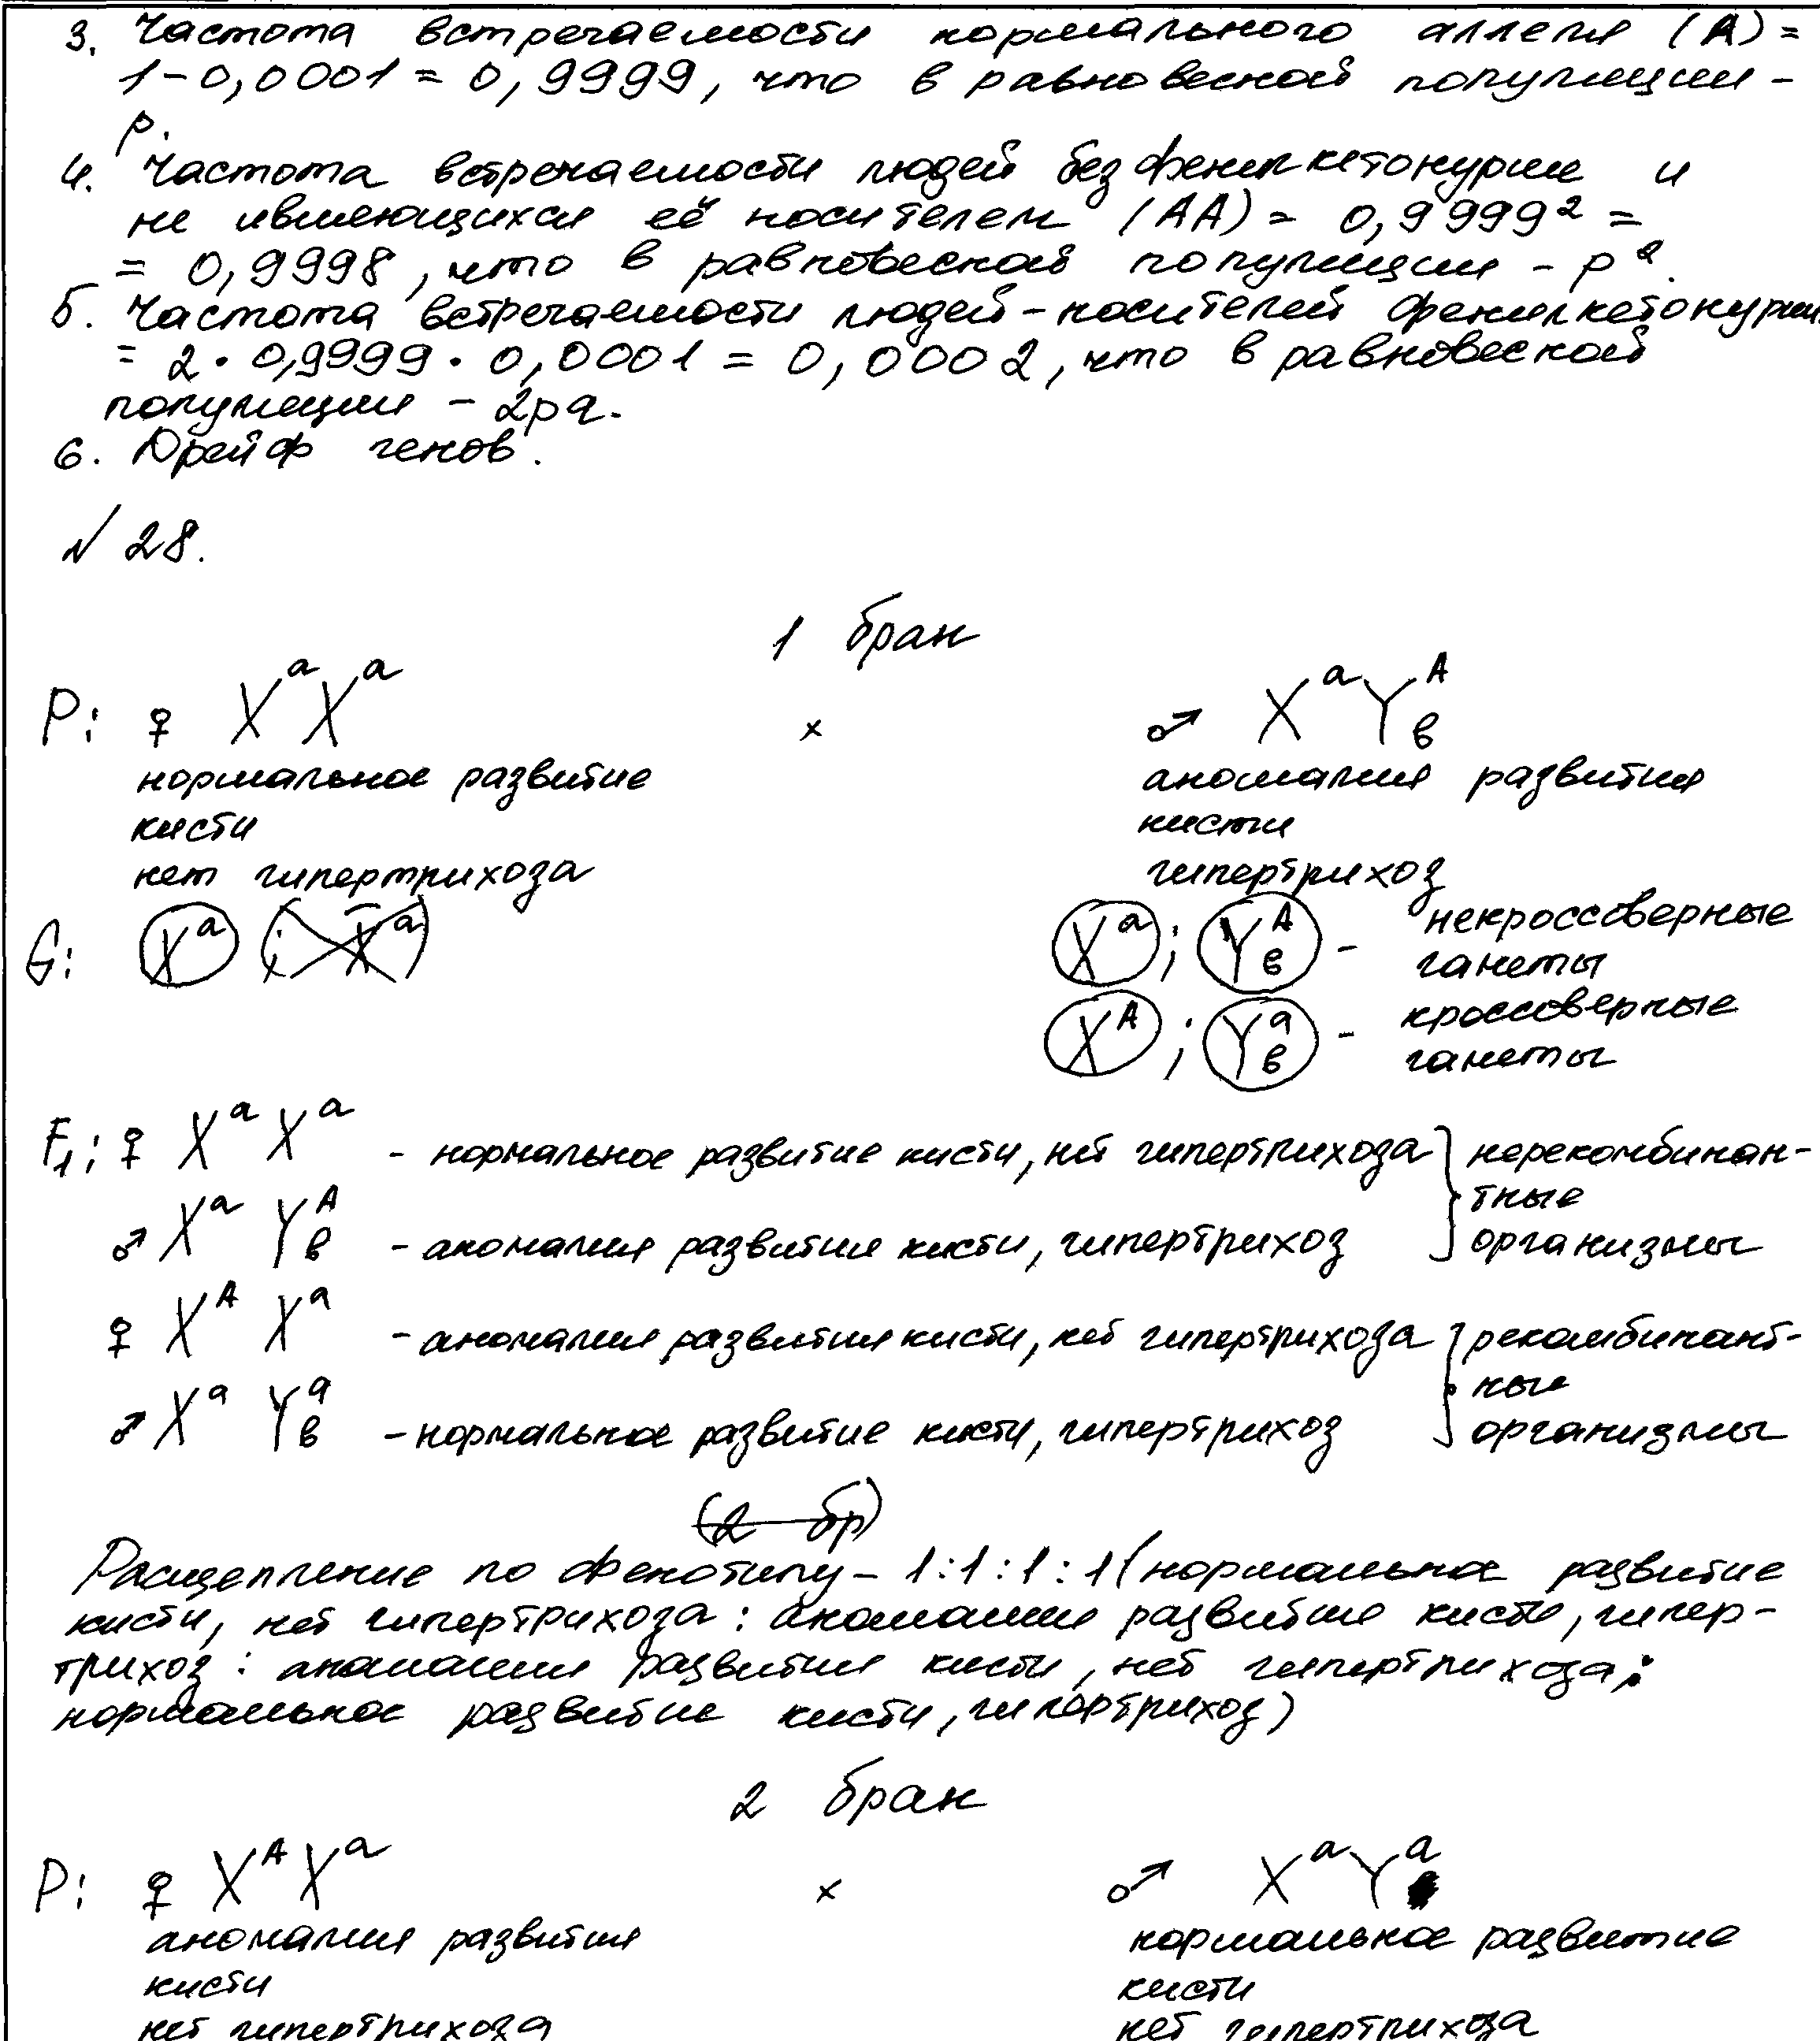 3. Частота встречаемости нормального аллеля (А) =
1-0,0001 = 0,9999, что в равновесной популяции -
p.
4. Частота встречаемости людей без фенилкетонурии и
не являющихся её носителем (АА) = 0,9999² =
= 0,9998, что в равновесной популяции - p².
5. Частота встречаемости людей-носителей фенилкетонурии
= 2 · 0,9999 · 0,0001 = 0,0002, что в равновесной
популяции - 2pq.
6. Дрейф генов.
№ 28.
1 брак
P: ♀ XᵃXᵃ × ♂ XᵃYᴬв
нормальное развитие аномалия развития
кисти кисти
нет гипертрихоза гипертрихоз
G: Xᵃ (; Xᵃ) Xᵃ; Yᴬв - некроссоверные
гаметы
Xᴬ; Yᵃв - кроссоверные
гаметы
F₁: ♀ Xᵃ Xᵃ - нормальное развитие кисти, нет гипертрихоза } нерекомбинан-
тные
♂ Xᵃ Yᴬв - аномалия развития кисти, гипертрихоз организмы
♀ Xᴬ Xᵃ - аномалия развития кисти, нет гипертрихоза } рекомбинант-
ные
♂ Xᵃ Yᵃв - нормальное развитие кисти, гипертрихоз организмы
(2 бр)
Расщепление по фенотипу - 1:1:1:1 (нормальное развитие
кисти, нет гипертрихоза : аномалия развития кисти, гипер-
трихоз : аномалия развития кисти, нет гипертрихоза :
нормальное развитие кисти, гипертрихоз)
2 брак
P: ♀ XᴬXᵃ × ♂ XᵃYᵃ
аномалия развития нормальное развитие
кисти кисти
нет гипертрихоза нет гипертрихоза